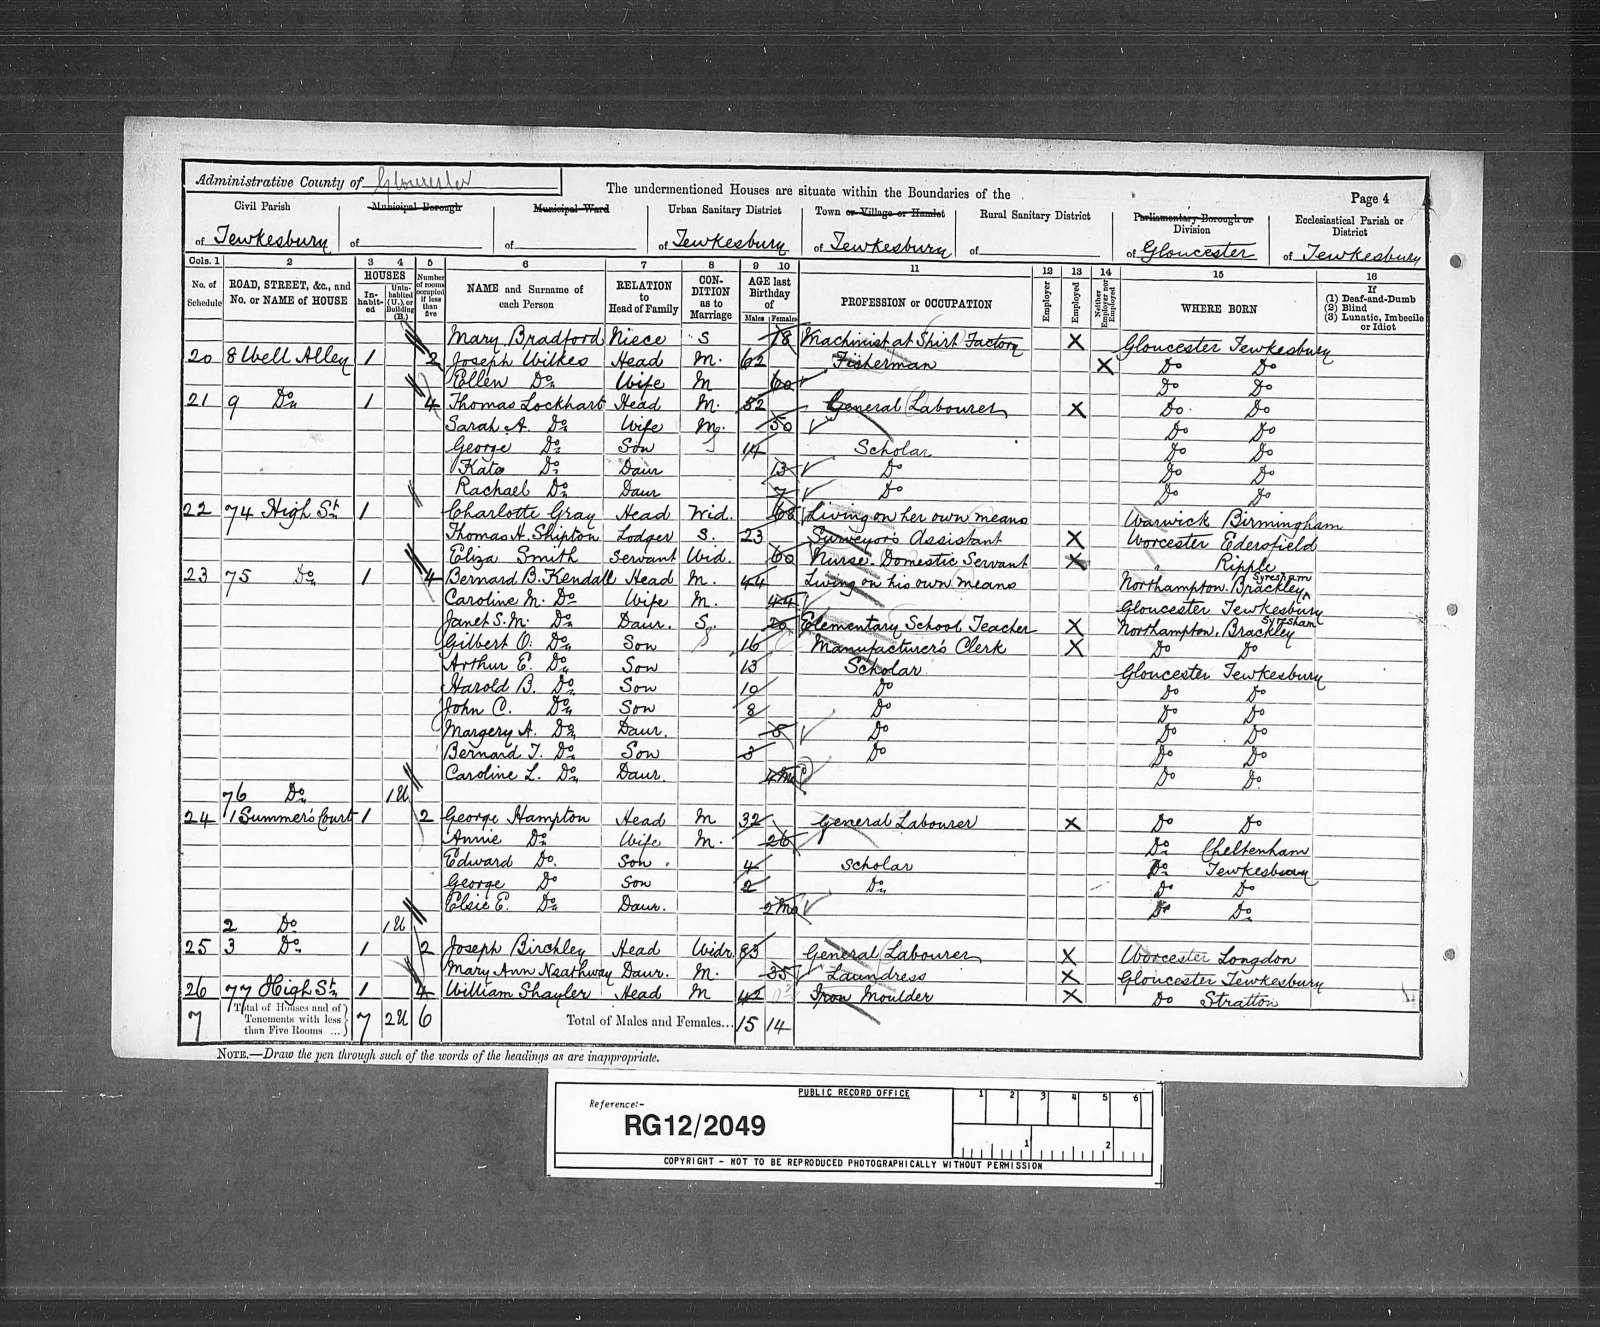 Administrative County of Gloucester
The undermentioned Houses are situate within the Boundaries of the
Page 4
Civil Parish of Tewkesbury
Municipal Borough of
Municipal Ward of
Urban Sanitary District of Tewkesbury
Town or Village or Hamlet of Tewkesbury
Rural Sanitary District of
Parliamentary Borough or Division of Gloucester
Ecclesiastical Parish or District of Tewkesbury
Cols. 1 2 3 4 5 6 7 8 9 10 11 12 13 14 15 16
No. of Schedule
ROAD, STREET, &c., and No. or NAME of HOUSE
HOUSES
In-habit-ed
Unin-habited (U.), or Building (B.)
Number of rooms occupied if less than five
NAME and Surname of each Person
RELATION to Head of Family
CON-DITION as to Marriage
AGE last Birthday of
Males Females
PROFESSION or OCCUPATION
Employer
Employed
Neither Employer nor Employed
WHERE BORN
If (1) Deaf-and-Dumb (2) Blind (3) Lunatic, Imbecile or Idiot
Mary Bradford Niece S 18 Machinist at Shirt Factory X Gloucester Tewkesbury
20 8 Well Alley 1 2 Joseph Wilkes Head M. 62 Fisherman X Do Do
Ellen Do Wife M 60 Do Do
21 9 Do 1 4 Thomas Lockhart Head M. 52 General Labourer X Do Do
Sarah A. Do Wife M. 50 Do Do
George Do Son 14 Scholar Do Do
Kate Do Daur 13 Do Do Do
Rachael Do Daur 7 Do Do Do
22 74 High St 1 Charlotte Gray Head Wid. 68 Living on her own means Warwick Birmingham
Thomas H. Shipton Lodger S. 23 Surveyor's Assistant X Worcester Edersfield
Eliza Smith Servant Wid. 60 Nurse. Domestic Servant X Ripple
23 75 Do 1 4 Bernard B. Kendall Head M. 44 Living on his own means Northampton. Brackley Syresham
Caroline M. Do Wife M. 44 Gloucester Tewkesbury
Janet S. M. Do Daur. S. 20 Elementary School Teacher X Northampton. Brackley Syresham
Gilbert O. Do Son 16 Manufacturer's Clerk X Do Do
Arthur E. Do Son 13 Scholar Gloucester Tewkesbury
Harold B. Do Son 10 Do Do Do
John C. Do Son 8 Do Do Do
Margery A. Do Daur. 5 Do Do Do
Bernard T. Do Son 3 Do Do Do
Caroline L. Do Daur. 4 Mo Do Do
76 Do 1U
24 1 Summer's Court 1 2 George Hampton Head M 32 General Labourer X Do Do
Annie Do Wife M. 26 Do Cheltenham
Edward Do Son. 4 Scholar Do Tewkesbury
George Do Son 2 Do Do Do
Elsie E. Do Daur. 2 Mo Do Do
2 Do 1U
25 3 Do 1 2 Joseph Birchley Head Widr. 83 General Labourer X Worcester Longdon
Mary Ann Neathway Daur. M. 35 Laundress X Gloucester Tewkesbury
26 77 High St 1 4 William Shayler Head M 42 Iron Moulder X Do Stratton
7 Total of Houses and of Tenements with less than Five Rooms ... 7 2U 6 Total of Males and Females... 15 14
NOTE.—Draw the pen through such of the words of the headings as are inappropriate.
PUBLIC RECORD OFFICE
1 2 3 4 5 6
Reference:-
RG12/2049
1 2
COPYRIGHT - NOT TO BE REPRODUCED PHOTOGRAPHICALLY WITHOUT PERMISSION